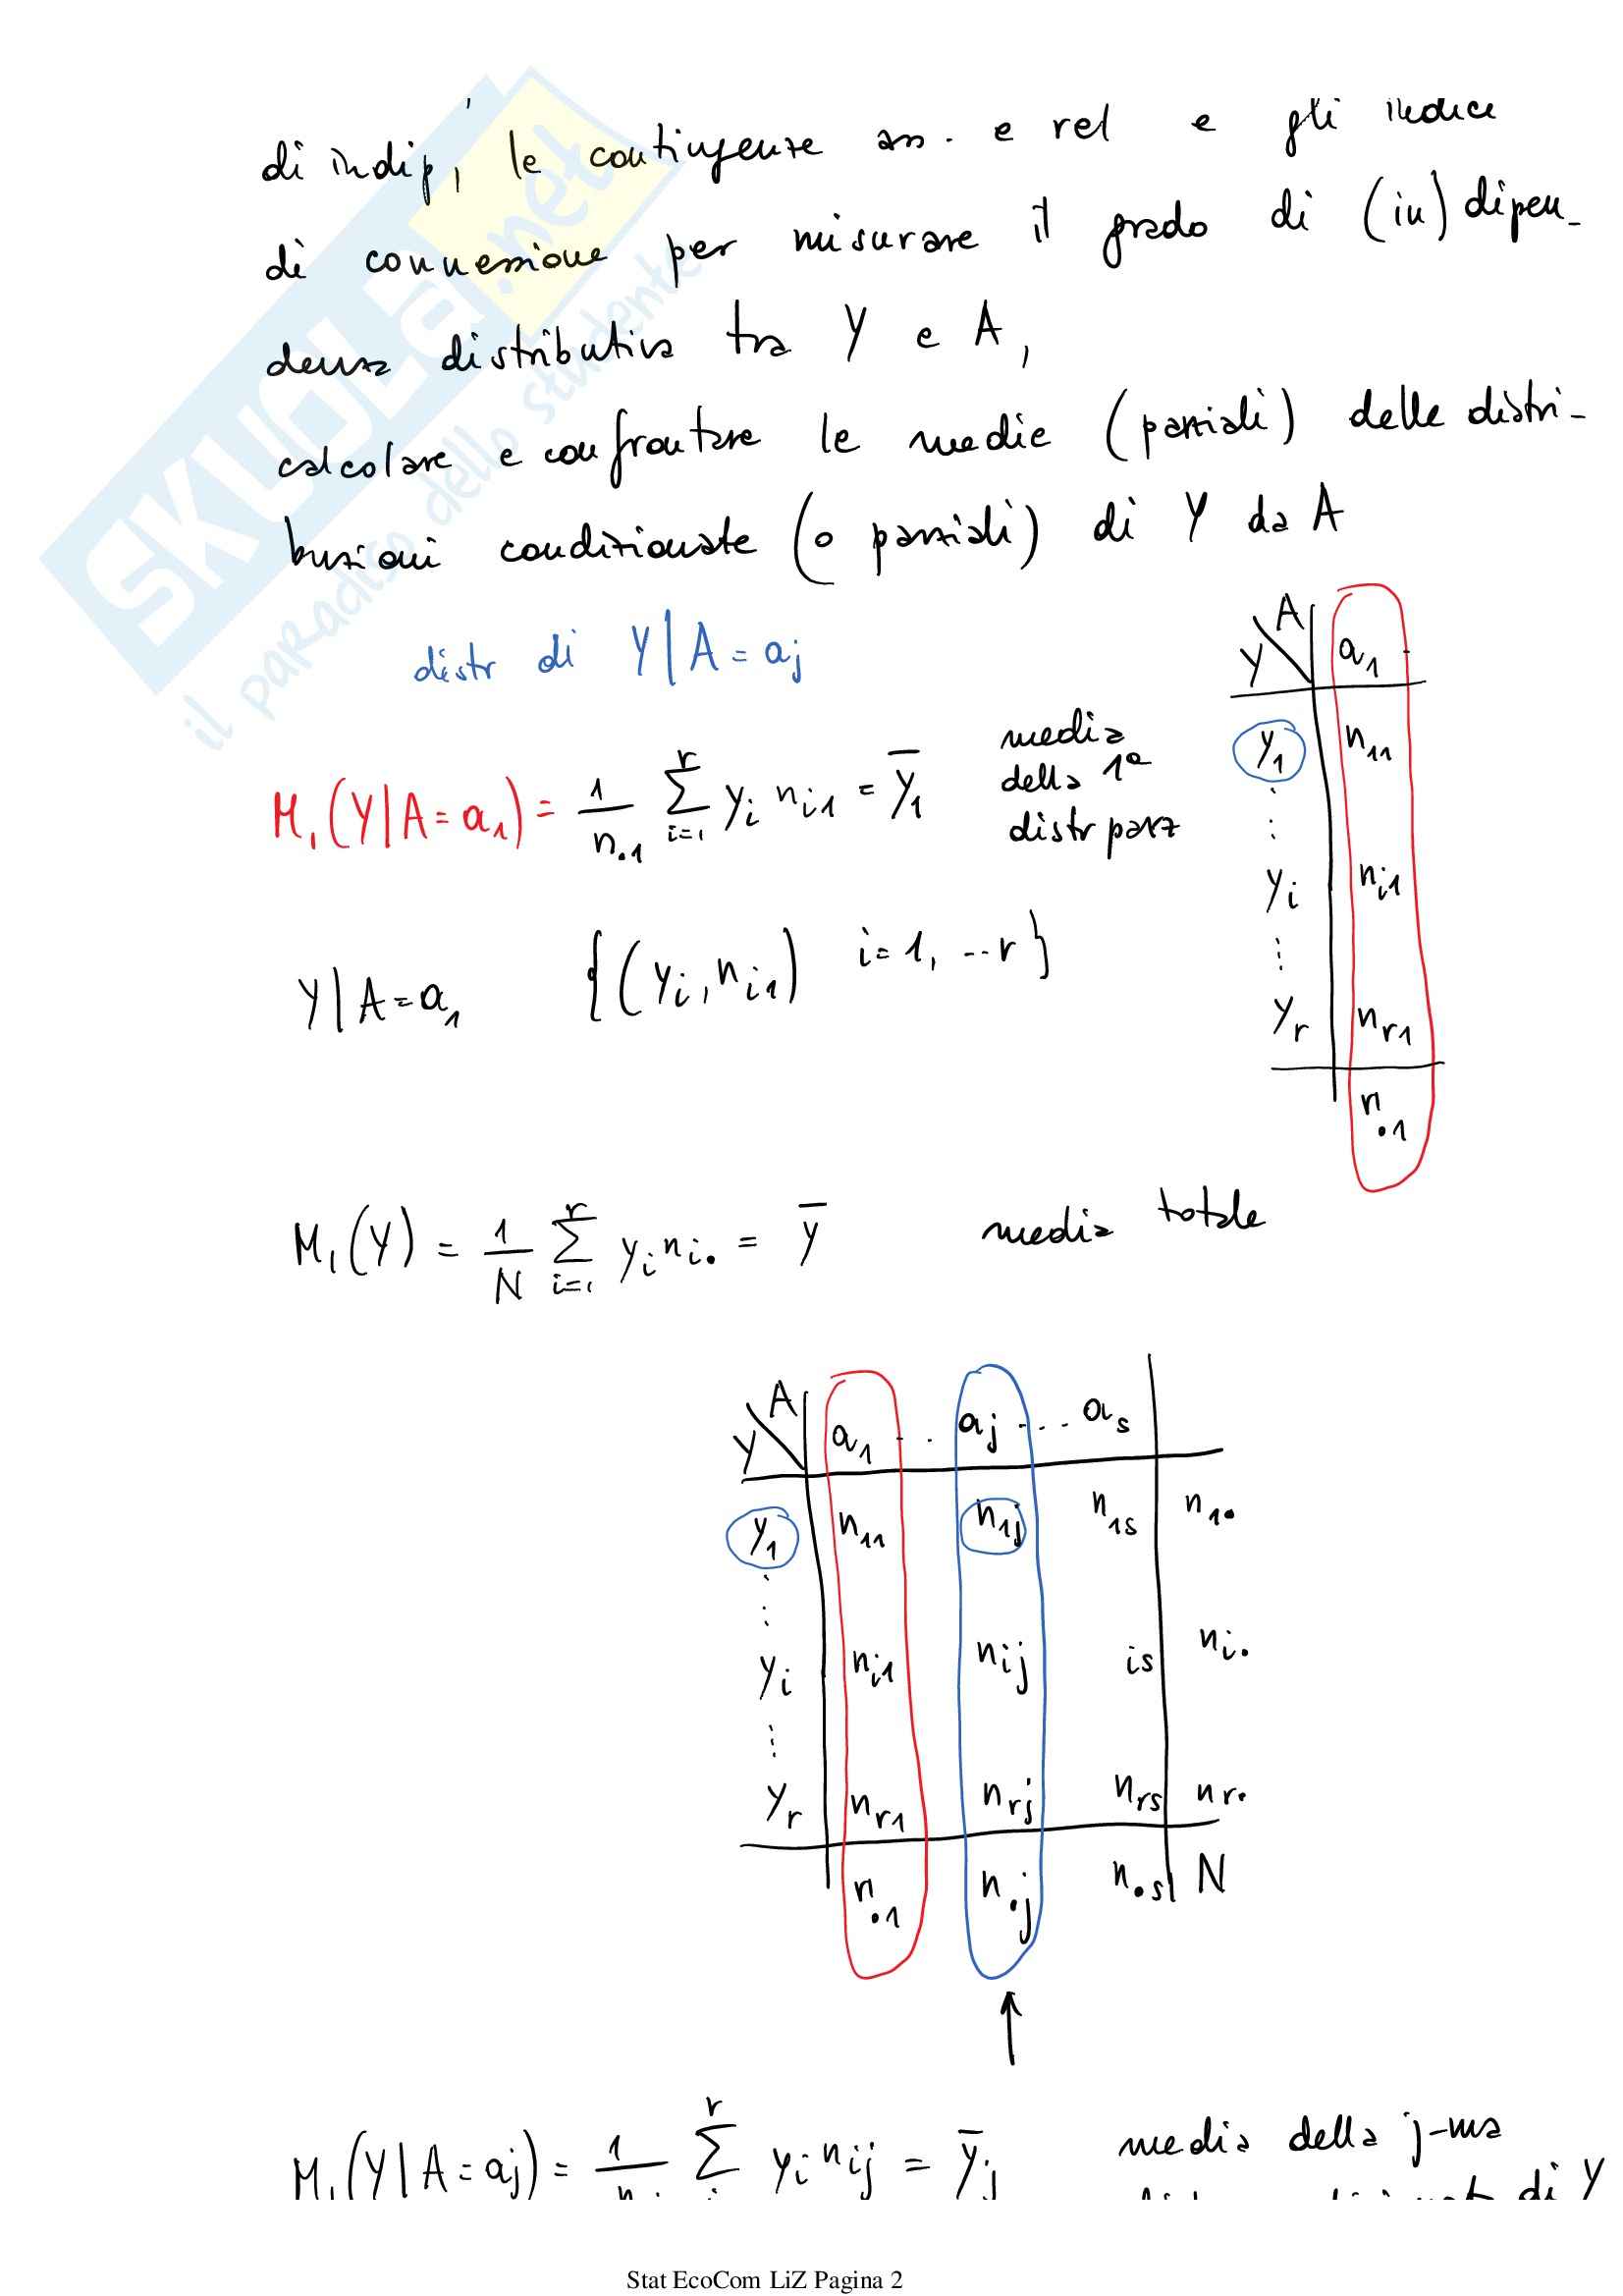 di indip, le contingenze ass. e rel e gli indici
di connessione per misurare il grado di (in)dipen-
denza distributiva tra Y e A,
calcolare e confrontare le medie (parziali) delle distri-
buzioni condizionate (o parziali) di Y da A
distr di Y|A=aj
M₁(Y|A=a₁) = 1/n.₁ Σ(i=1, r) yᵢ nᵢ₁ = ȳ₁ media della 1ª distr parz
Y\A a₁
y₁ n₁₁
⋮
yᵢ nᵢ₁
⋮
yᵣ nᵣ₁
n.₁
Y|A=a₁ {(yᵢ, nᵢ₁) i=1, ...r}
M₁(Y) = 1/N Σ(i=1, r) yᵢ nᵢ. = ȳ media totale
Y\A a₁ .. aj ... as
y₁ n₁₁ n₁j n₁s n₁.
⋮
yᵢ nᵢ₁ nᵢj is nᵢ.
⋮
yᵣ nᵣ₁ nᵣj nᵣs nᵣ.
n.₁ n.j n.s N
↑
M₁(Y|A=aj) = 1/n Σ r yᵢ nᵢj = ȳj media della j-ma
di Y
Stat EcoCom LiZ Pagina 2
SKUOLa.net
il paradiso dello studente